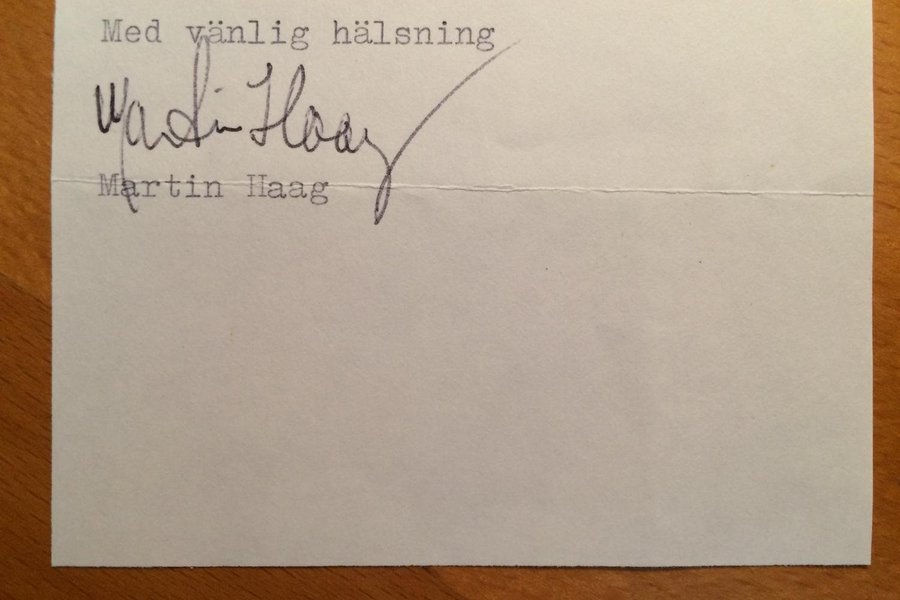 Med vänlig hälsning
Martin Haag
Martin Haag